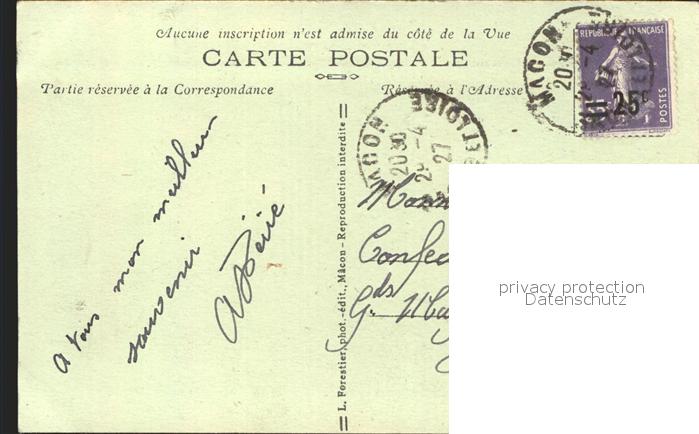 Aucune inscription n'est admise du côté de la Vue
CARTE POSTALE
Partie réservée à la Correspondance
Réservée à l'Adresse
A vous mon meilleur
souvenir
L. Forestier, phot.-édit., Mâcon - Reproduction interdite
MACON
20 30
29-4
27
ET LOIRE
MACON
20
-4
REPUBLIQUE FRANÇAISE
25c
POSTES
Gds
privacy protection
Datenschutz